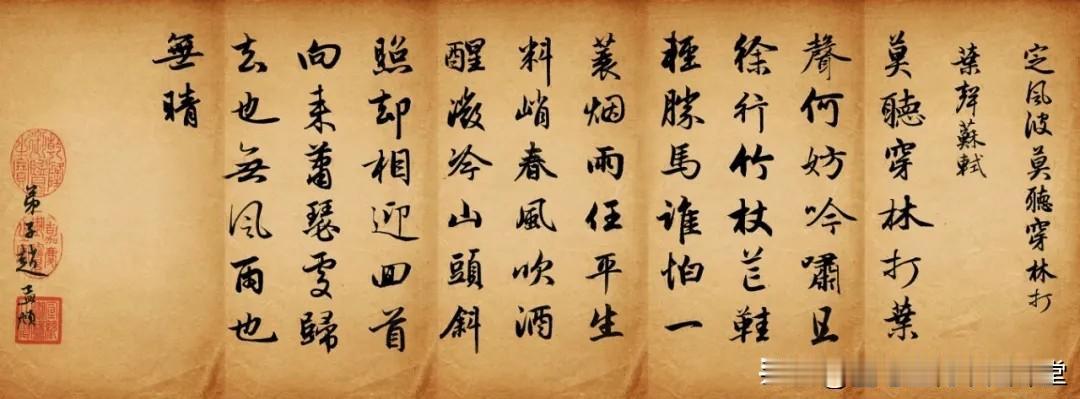 定風波莫聽穿林打
葉聲蘇軾
莫聽穿林打葉
聲何妨吟嘯且
徐行竹杖芒鞋
輕勝馬誰怕一
蓑烟雨任平生
料峭春風吹酒
醒微冷山頭斜
照却相迎回首
向来蕭瑟處歸
去也無風雨也
無晴
弟子趙孟頫
堂